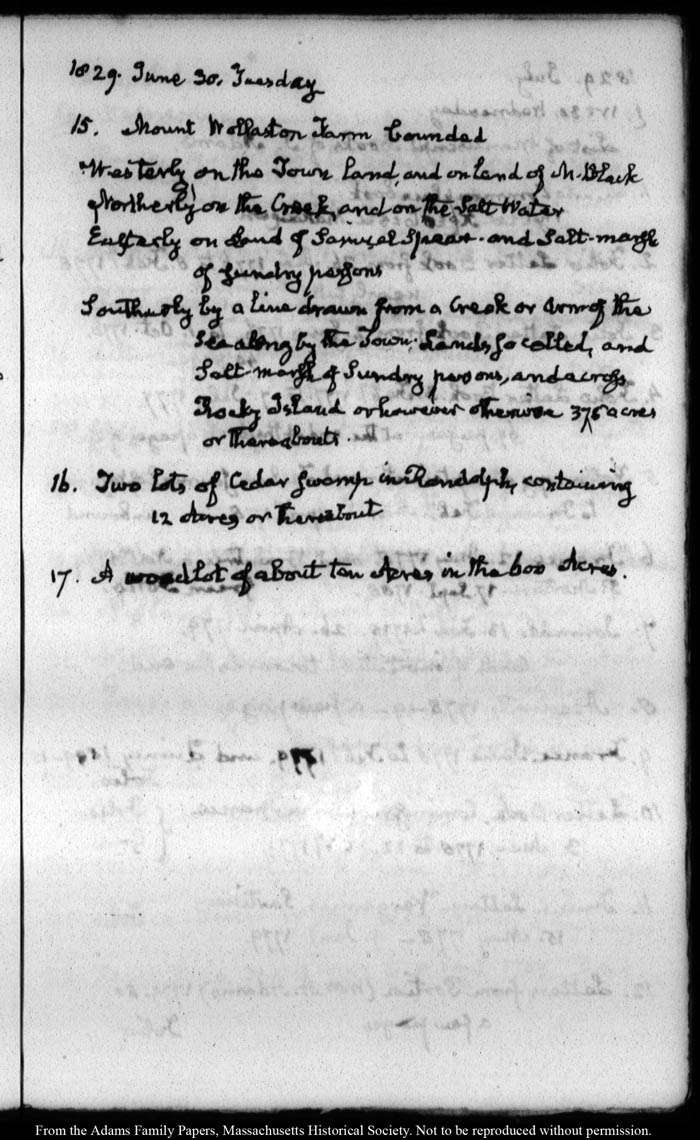 1829. June 30. Tuesday
15. Mount Wollaston Farm bounded
Westerly on the Town land, and on land of M. Black
Northerly on the Creek, and on the Salt Water
Easterly on Land of Samuel Spear. and Salt-marsh
of sundry persons
Southerly by a line drawn from a Creek or Arm of the
Sea along by the Town. Lands, so called, and
Salt-marsh of Sundry persons, and across
Rocky Island or however otherwise 375 acres
or thereabouts.
16. Two Lots of Cedar Swamp in Randolph, containing
12 Acres or thereabout
17. A wood Lot of about ten Acres in the 600 Acres.
From the Adams Family Papers, Massachusetts Historical Society. Not to be reproduced without permission.